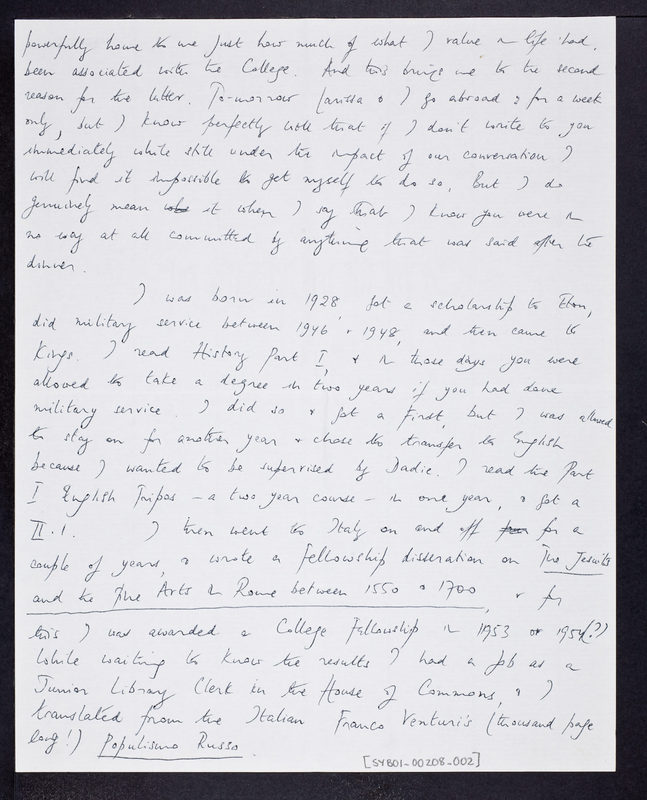 powerfully home to me just how much of what I value in life had
been associated with the College. And this brings me to the second
reason for the letter. To-morrow Larissa & I go abroad : for a week
only, but I know perfectly well that if I don't write to you
immediately while still under the impact of our conversation I
will find it impossible to get myself to do so. But I do
genuinely mean it when I say that I know you were in
no way at all committed by anything that was said after the
dinner.
I was born in 1928, got a scholarship to Eton,
did military service between 1946 & 1948, and then came to
Kings. I read History Part I, & in those days you were
allowed to take a degree in two years if you had done
military service. I did so & got a First, but I was allowed
to stay on for another year & chose to transfer to English
because I wanted to be supervised by Dadie. I read the Part
I English Tripos – a two year course – in one year, & got a
II.1. I then went to Italy on and off for a
couple of years, & wrote a fellowship disseration on The Jesuits
and the Fine Arts in Rome between 1550 & 1700, & for
this I was awarded a College Fellowship in 1953 or 1954(?)
While waiting to know the results I had a job as a
Junior Library Clerk in the House of Commons, & I
translated from the Italian Franco Venturi's (thousand page
long!) Populismo Russo.
[SYB01-00208-002]